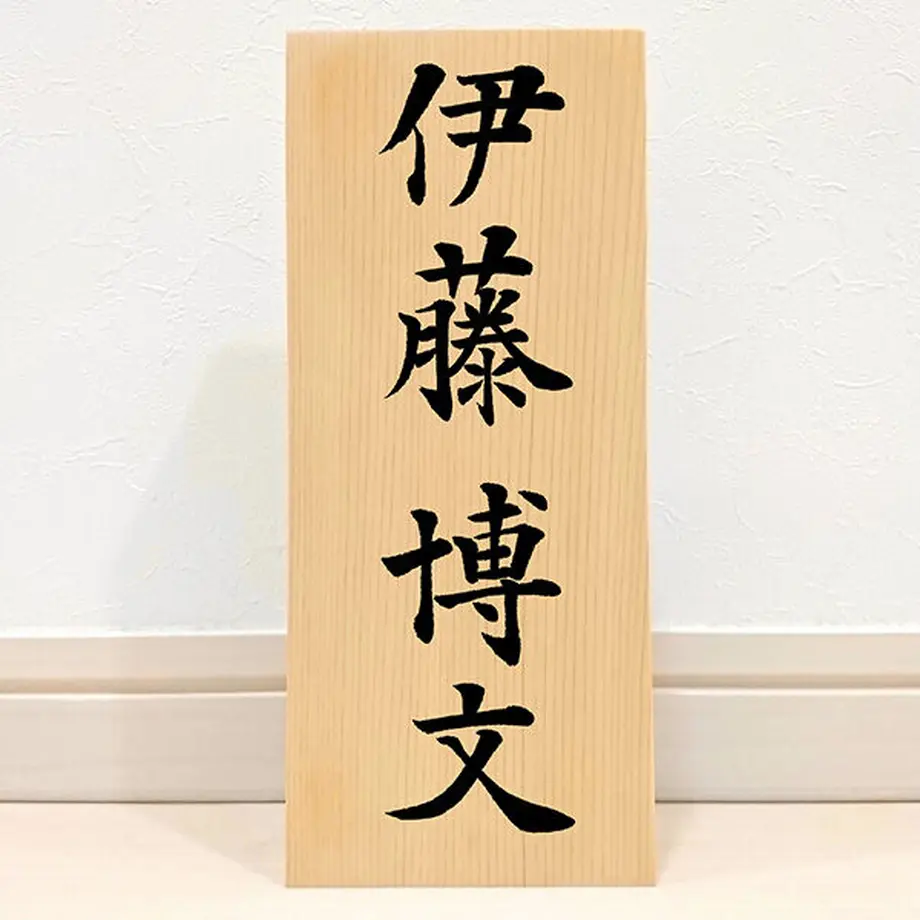 伊藤博文